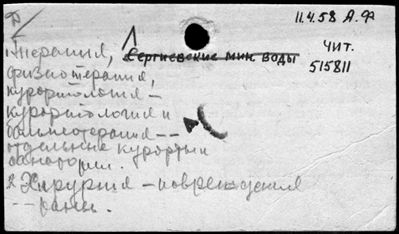 Ф
11.4.58 А.Ф
1 Сергиевские мин. воды
чит.
515811
1 терапия,
физиотерапия,
курортология –
курортология и
бальнеотерапия --
отдельные курорты и
санатории.
2 Хирургия – повреждения
-- раны.